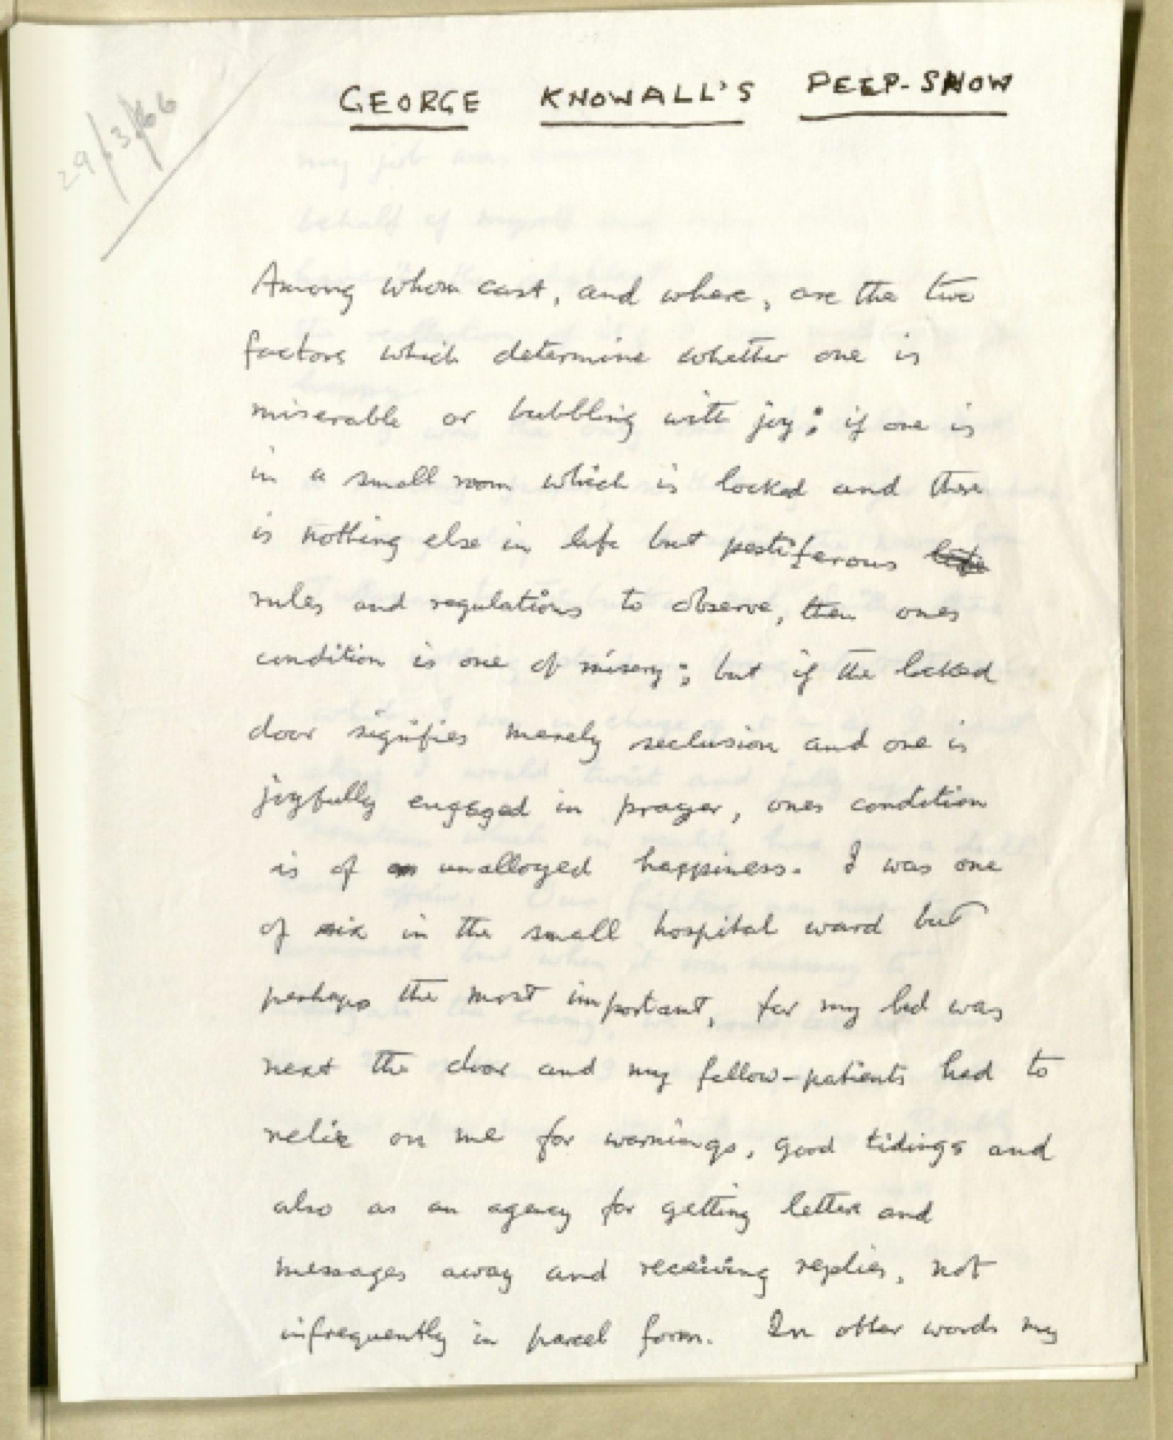 29/3/66
GEORGE KNOWALL'S PEEP-SHOW
Among whom cast, and where, are the two
factors which determine whether one is
miserable or bubbling with joy; if one is
in a small room which is locked and there
is nothing else in life but pestiferous
rules and regulations to observe, then ones
condition is one of misery; but if the locked
door signifies merely seclusion and one is
joyfully engaged in prayer, ones condition
is of unalloyed happiness. I was one
of six in the small hospital ward but
perhaps the most important, for my bed was
next the door and my fellow-patients had to
relie on me for warnings, good tidings and
also as an agency for getting letters and
messages away and receiving replies, not
infrequently in parcel form. In other words my